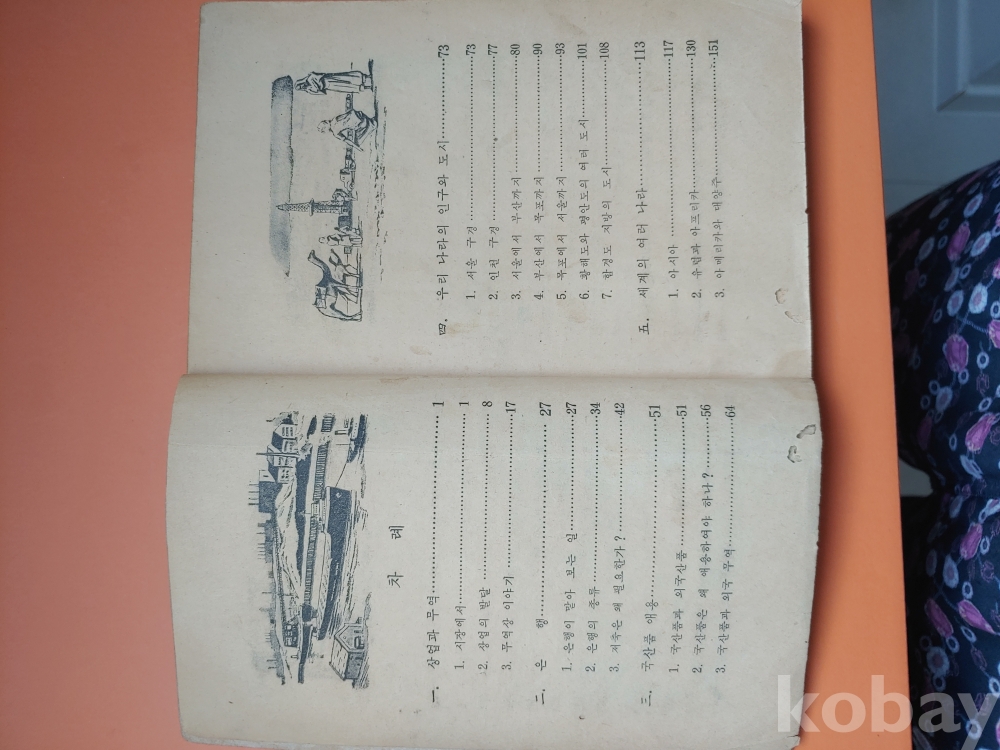 차 례
一. 상업과 무역 1
1. 시장에서 1
2. 상업의 발달 8
3. 무역상 이야기 17
二. 은 행 27
1. 은행이 맡아 보는 일 27
2. 은행의 종류 34
3. 저축은 왜 필요한가? 42
三. 국산품 애용 51
1. 국산품과 외국산품 51
2. 국산품은 왜 애용하여야 하나? 56
3. 국산품과 외국 무역 64
四. 우리 나라의 인구와 도시 73
1. 서울 구경 73
2. 인천 구경 77
3. 서울에서 부산까지 80
4. 부산에서 목포까지 90
5. 목포에서 서울까지 93
6. 황해도와 평안도의 여러 도시 101
7. 함경도 지방의 도시 108
五. 세계의 여러 나라 113
1. 아시아 117
2. 유럽과 아프리카 130
3. 아메리카와 대양주 151
kobay